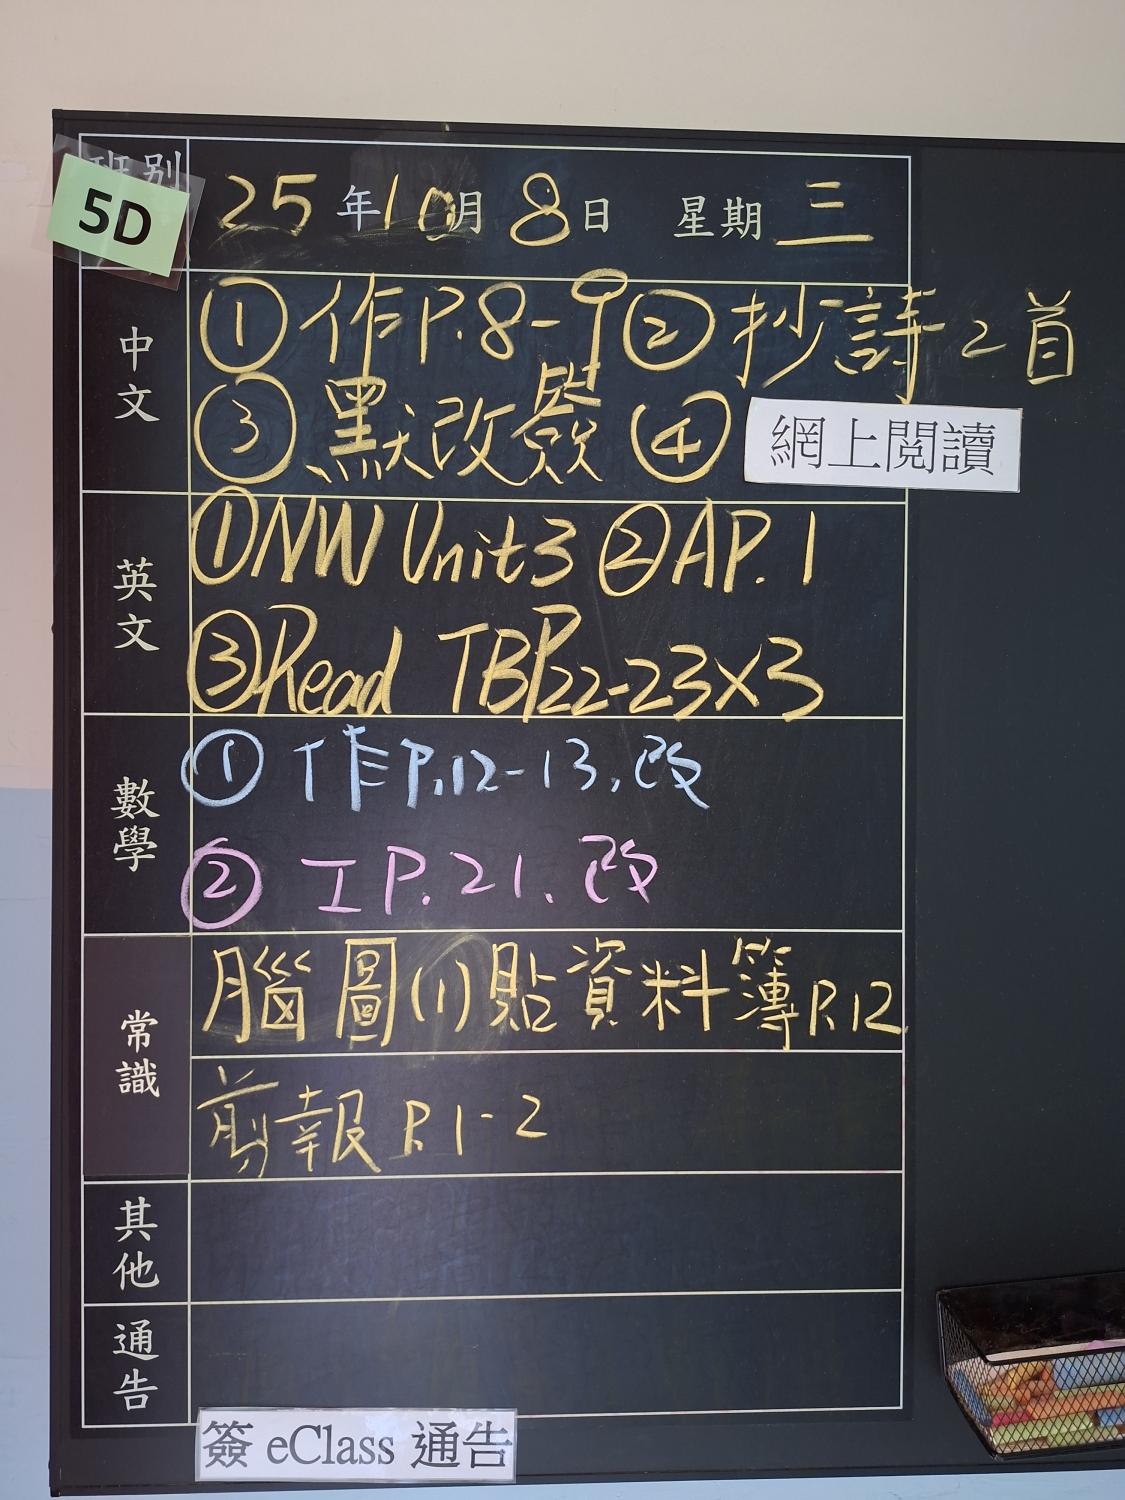 班別
5D
25年10月8日 星期三
中文
①作P.8-9②抄詩2首
③默改簽④網上閱讀
英文
①NW Unit3②AP.1
③Read TBP22-23x3
數學
①作P.12-13,改
②工P.21.改
常識
腦圖(1)貼資料簿P.12
剪報P.1-2
其他
通告
簽 eClass 通告